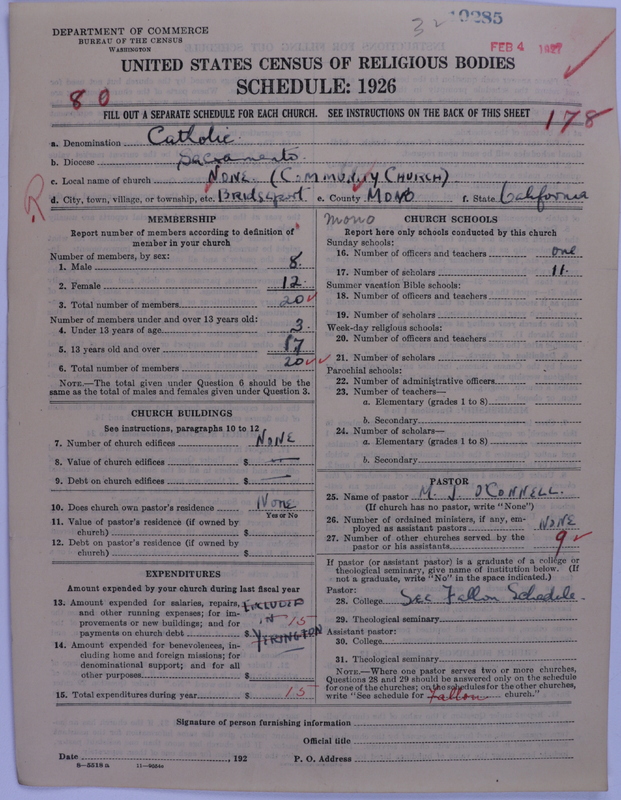 DEPARTMENT OF COMMERCE
BUREAU OF THE CENSUS
WASHINGTON
32 19285
FEB 4 1927
UNITED STATES CENSUS OF RELIGIOUS BODIES
SCHEDULE: 1926
80
FILL OUT A SEPARATE SCHEDULE FOR EACH CHURCH. SEE INSTRUCTIONS ON THE BACK OF THIS SHEET
178
a. Denomination Catholic
b. Diocese Sacramento
c. Local name of church NONE (COMMUNITY CHURCH)
R
d. City, town, village, or township, etc. BRIDGEPORT e. County MONO f. State California
MEMBERSHIP
Report number of members according to definition of member in your church
Number of members, by sex:
1. Male 8
2. Female 12
3. Total number of members 20
Number of members under and over 13 years old:
4. Under 13 years of age 3
5. 13 years old and over 17
6. Total number of members 20
NOTE.—The total given under Question 6 should be the
same as the total of males and females given under Question 3.
CHURCH BUILDINGS
See instructions, paragraphs 10 to 12
7. Number of church edifices NONE
8. Value of church edifices $ —
9. Debt on church edifices $ —
10. Does church own pastor's residence None
Yes or No
11. Value of pastor's residence (if owned by
church) $
12. Debt on pastor's residence (if owned by
church) $
EXPENDITURES
Amount expended by your church during last fiscal year
13. Amount expended for salaries, repairs,
and other running expenses; for im-
provements or new buildings; and for
payments on church debt $ 15
EXCLUDED
IN
YERINGTON
14. Amount expended for benevolences, in-
cluding home and foreign missions; for
denominational support; and for all
other purposes $
15. Total expenditures during year $ 15
mono
CHURCH SCHOOLS
Report here only schools conducted by this church
Sunday schools:
16. Number of officers and teachers one
17. Number of scholars 11
Summer vacation Bible schools:
18. Number of officers and teachers
19. Number of scholars
Week-day religious schools:
20. Number of officers and teachers
21. Number of scholars
Parochial schools:
22. Number of administrative officers
23. Number of teachers—
a. Elementary (grades 1 to 8)
b. Secondary
24. Number of scholars—
a. Elementary (grades 1 to 8)
b. Secondary
PASTOR
25. Name of pastor M. J. O'CONNELL.
(If church has no pastor, write "None")
26. Number of ordained ministers, if any, em-
ployed as assistant pastors NONE
27. Number of other churches served by the
pastor or his assistants 9
If pastor (or assistant pastor) is a graduate of a college or
theological seminary, give name of institution below. (If
not a graduate, write "No" in the space indicated.)
Pastor:
28. College See Fallon Schedule.
29. Theological seminary
Assistant pastor:
30. College
31. Theological seminary
NOTE.—Where one pastor serves two or more churches,
Questions 28 and 29 should be answered only on the schedule
for one of the churches; on the schedules for the other churches,
write "See schedule for Fallon church."
Signature of person furnishing information
Official title
Date , 192
P. O. Address
8—5518 a